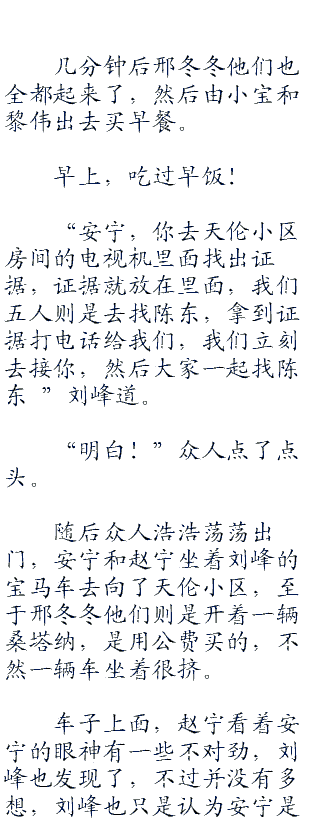 几分钟后邢冬冬他们也
全都起来了，然后由小宝和
黎伟出去买早餐。
早上，吃过早饭！
“安宁，你去天伦小区
房间的电视机里面找出证
据，证据就放在里面，我们
五人则是去找陈东，拿到证
据打电话给我们，我们立刻
去接你，然后大家一起找陈
东 ” 刘峰道。
“明白！” 众人点了点
头。
随后众人浩浩荡荡出
门，安宁和赵宁坐着刘峰的
宝马车去向了天伦小区，至
于邢冬冬他们则是开着一辆
桑塔纳，是用公费买的，不
然一辆车坐着很挤。
车子上面，赵宁看着安
宁的眼神有一些不对劲，刘
峰也发现了，不过并没有多
想，刘峰也只是认为安宁是